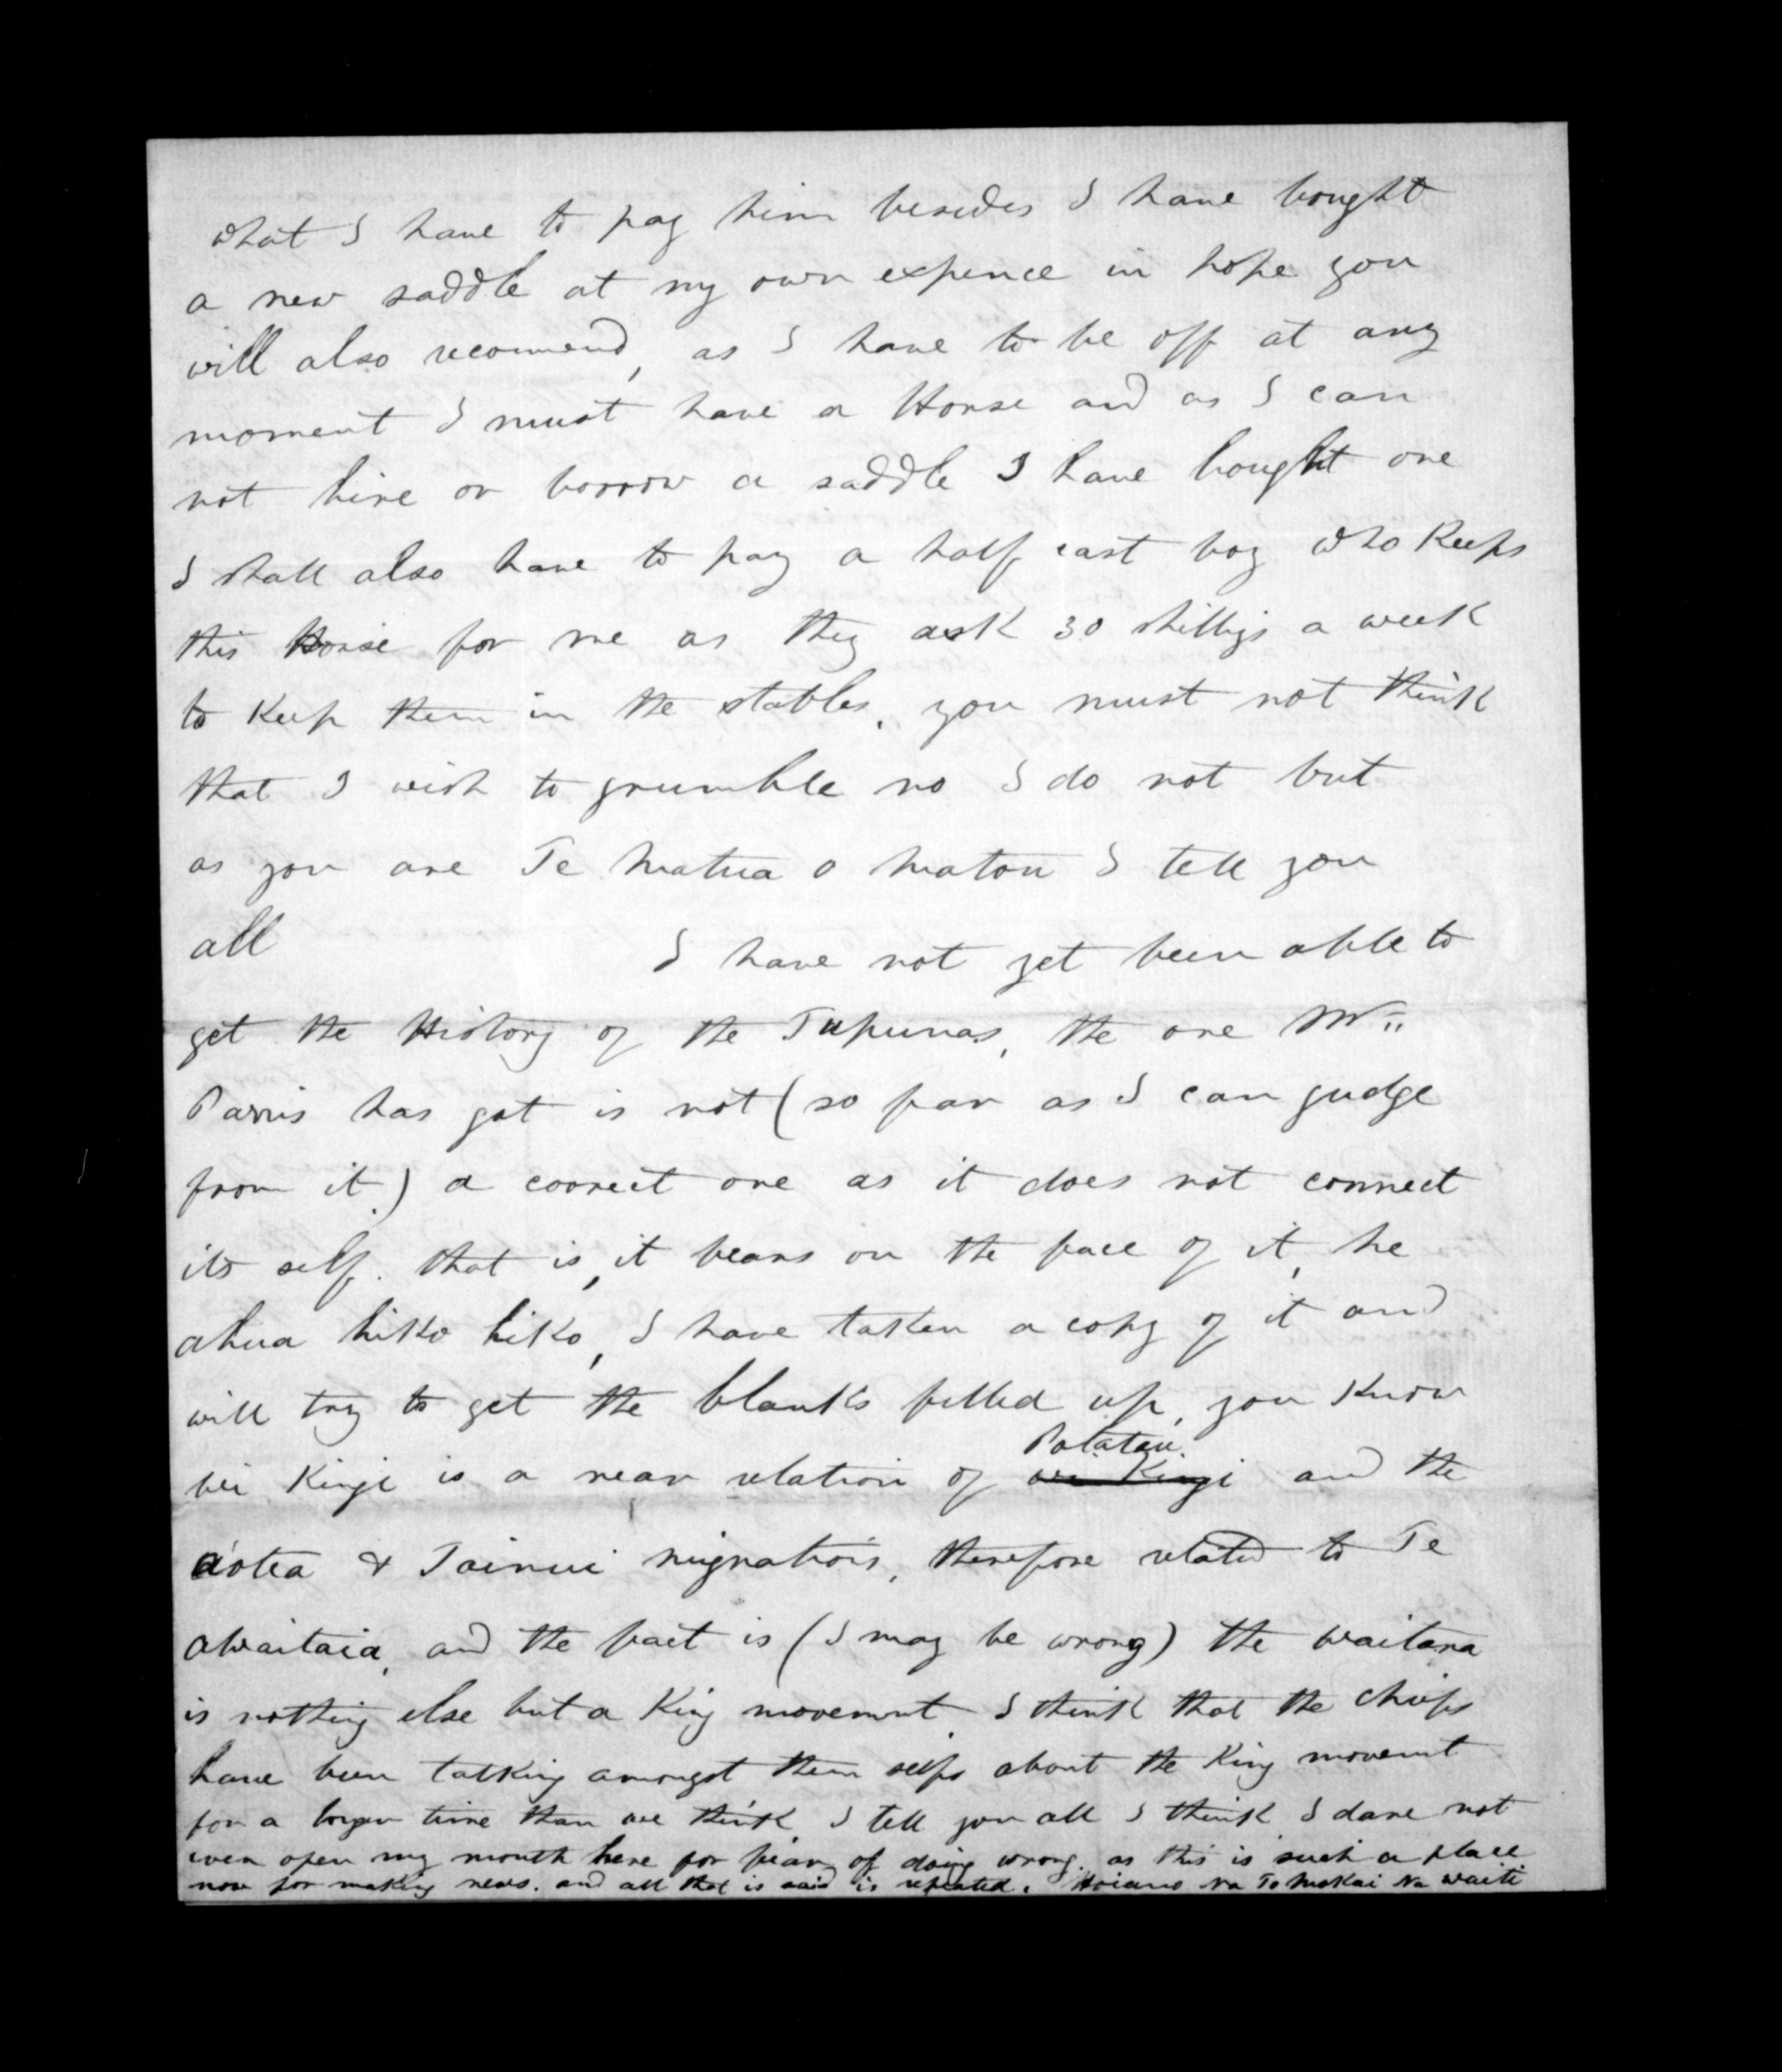 what I have to pay him besides I have bought
a new saddle at my own expence in hope you
will also recommend, as I have to be off at any
moment I must have a Horse and as I can
not hire or borrow a saddle I have bought one
I shall also have to pay a half cast boy who Keeps
this Horse for me as they ask 30 shilligs a week
to Keep them in the stables. you must not think
that I wish to grumble no I do not but
as you are Te Matua o Matou I tell you
all I have not yet been able to
get the History of the Tupunas, the one Mr
Parris has got is not (so far as I can judge
from it.) a correct one as it does not connect
its self. that is, it bears on the face of it, he
ahua hiko hiko, I have taken a copy of it and
will try to get the blanks filled up, you Know
Wi Kingi is a near relation of wi Kingi Potatau and the
aotea & Tainui migrations, therefore related to Te
Awaitaia, and the fact is (I may be wrong) the Waitara
is nothing else but a King movement I think that the chiefs
have been talking amongst them selfs about the King movemt
for a longer time than we think I tell you all I think I dare not
even open my mouth here for fear of doing wrong. as this is such a place
now for making news. and all that is said is repeated. Hoiano na To Mokai Na Waiti